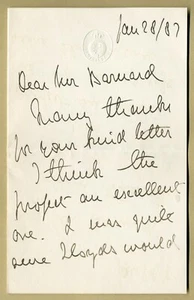 Jan 28/87
Dear Mr Barnard
Many thanks
for your kind letter
I think the
project an excellent
one. I was quite
sure Lloyds would